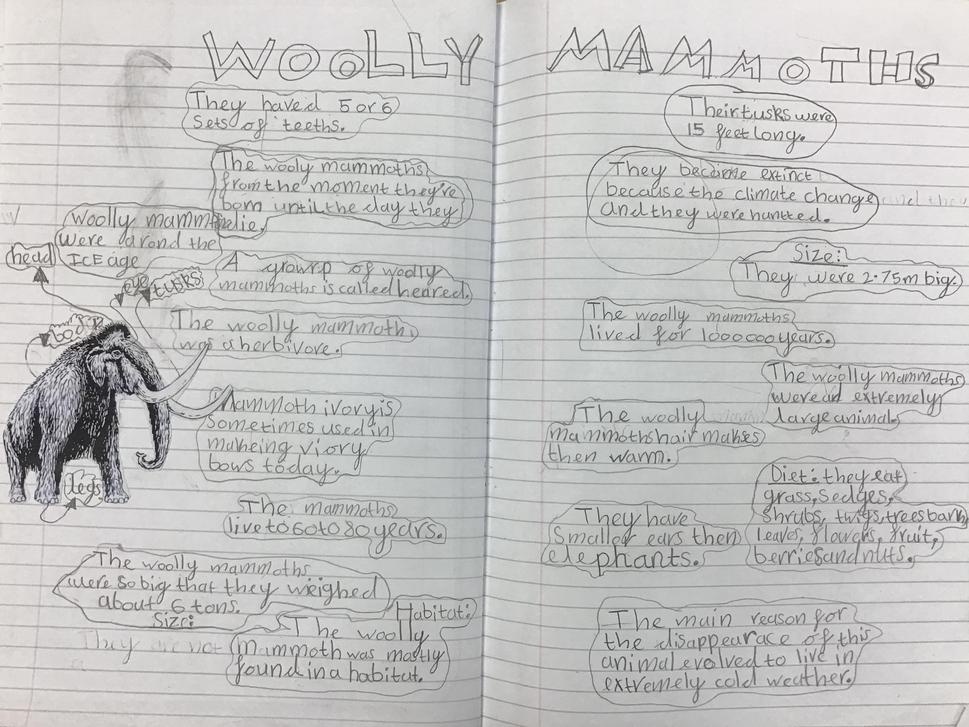 WOOLLY MAMMOTHS
They haved 5 or 6
sets of teeths.
The wooly mammoths
from the moment they're
born until the day they
die.
Woolly mammoth
were arond the
ICE age
head
eye
tusks
body
legs
A grourp of woolly
mammoths is called heared.
The woolly mammoth
was a herbivore.
Mammoth ivory is
sometimes used in
makeing viory
bows today.
The mammoths
live to 60 to 80 years.
The woolly mammoths
were so big that they weighed
about 6 tons.
Size:
They are not
Habitat:
The woolly
mammoth was mostly
found in a habitat.
Their tusks were
15 feet long.
They become extinct
because the climate change
and they were hunted.
Size:
They were 2.75m big.
The woolly mammoths
lived for 1000000 years.
The woolly mammoths
were an extremely
large animal.
The woolly
mammoths hair makes
then warm.
Diet: they eat
grass, sedges,
shrubs, twigs, trees bark,
leaves, flowers, fruit,
berries and nuts.
They have
Smaller ears then
elephants.
The main reason for
the disappearace of this
animal evolved to live in
extremely cold weather.